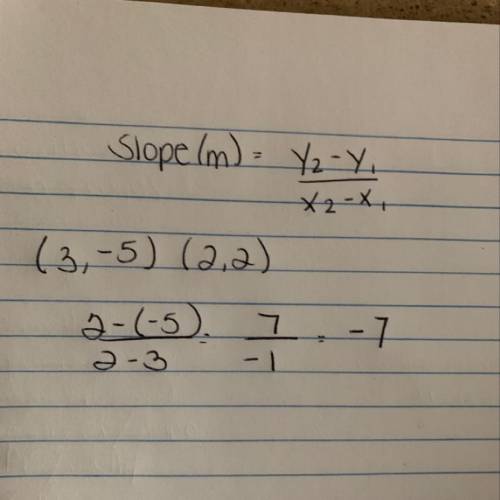 Slope (m) = Y₂ - Y₁ / X₂ - X₁
(3, -5) (2,2)
2-(-5) / 2-3 = 7 / -1 = -7